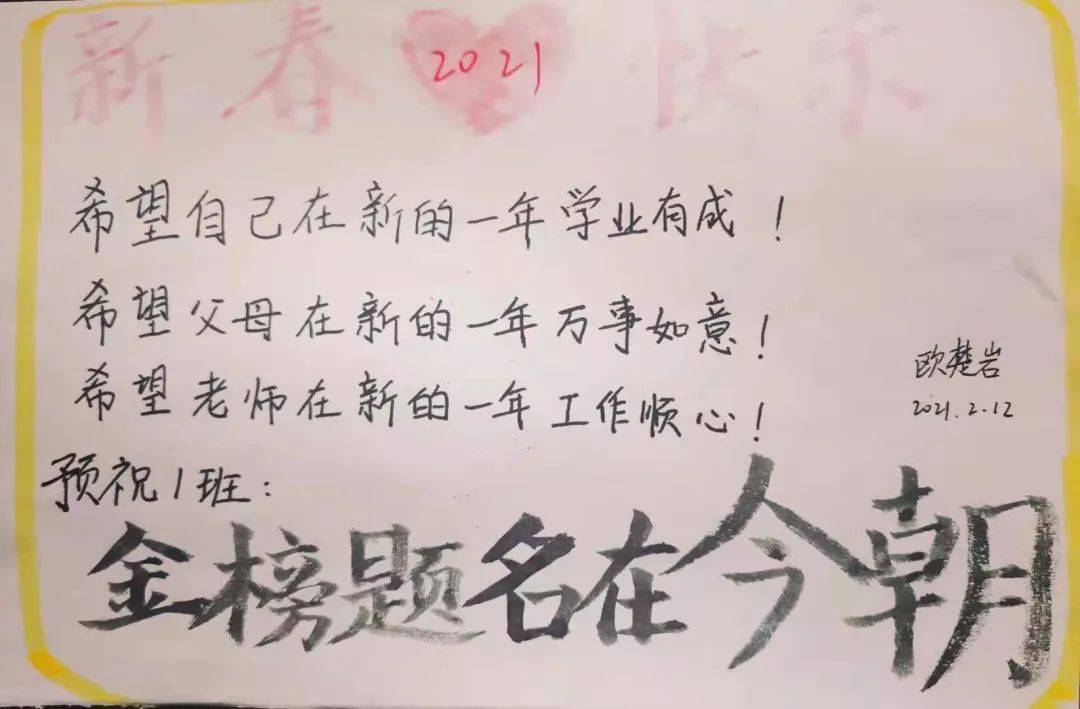 新春 2021 快乐
希望自己在新的一年学业有成！
希望父母在新的一年万事如意！
希望老师在新的一年工作顺心！
欧楚岩
2021.2.12
预祝1班：
金榜题名在今朝